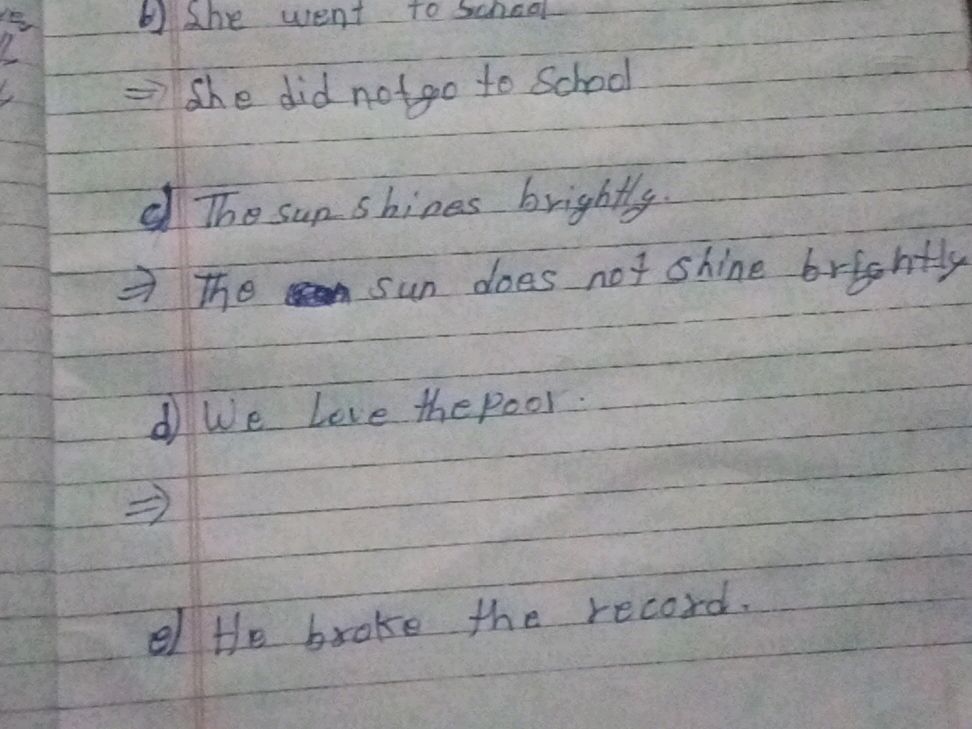 b) She went to School
⇒ She did not go to School
c) The sun shines brightly.
⇒ The sun does not shine brightly
d) We Love the poor.
⇒
e) He broke the record.